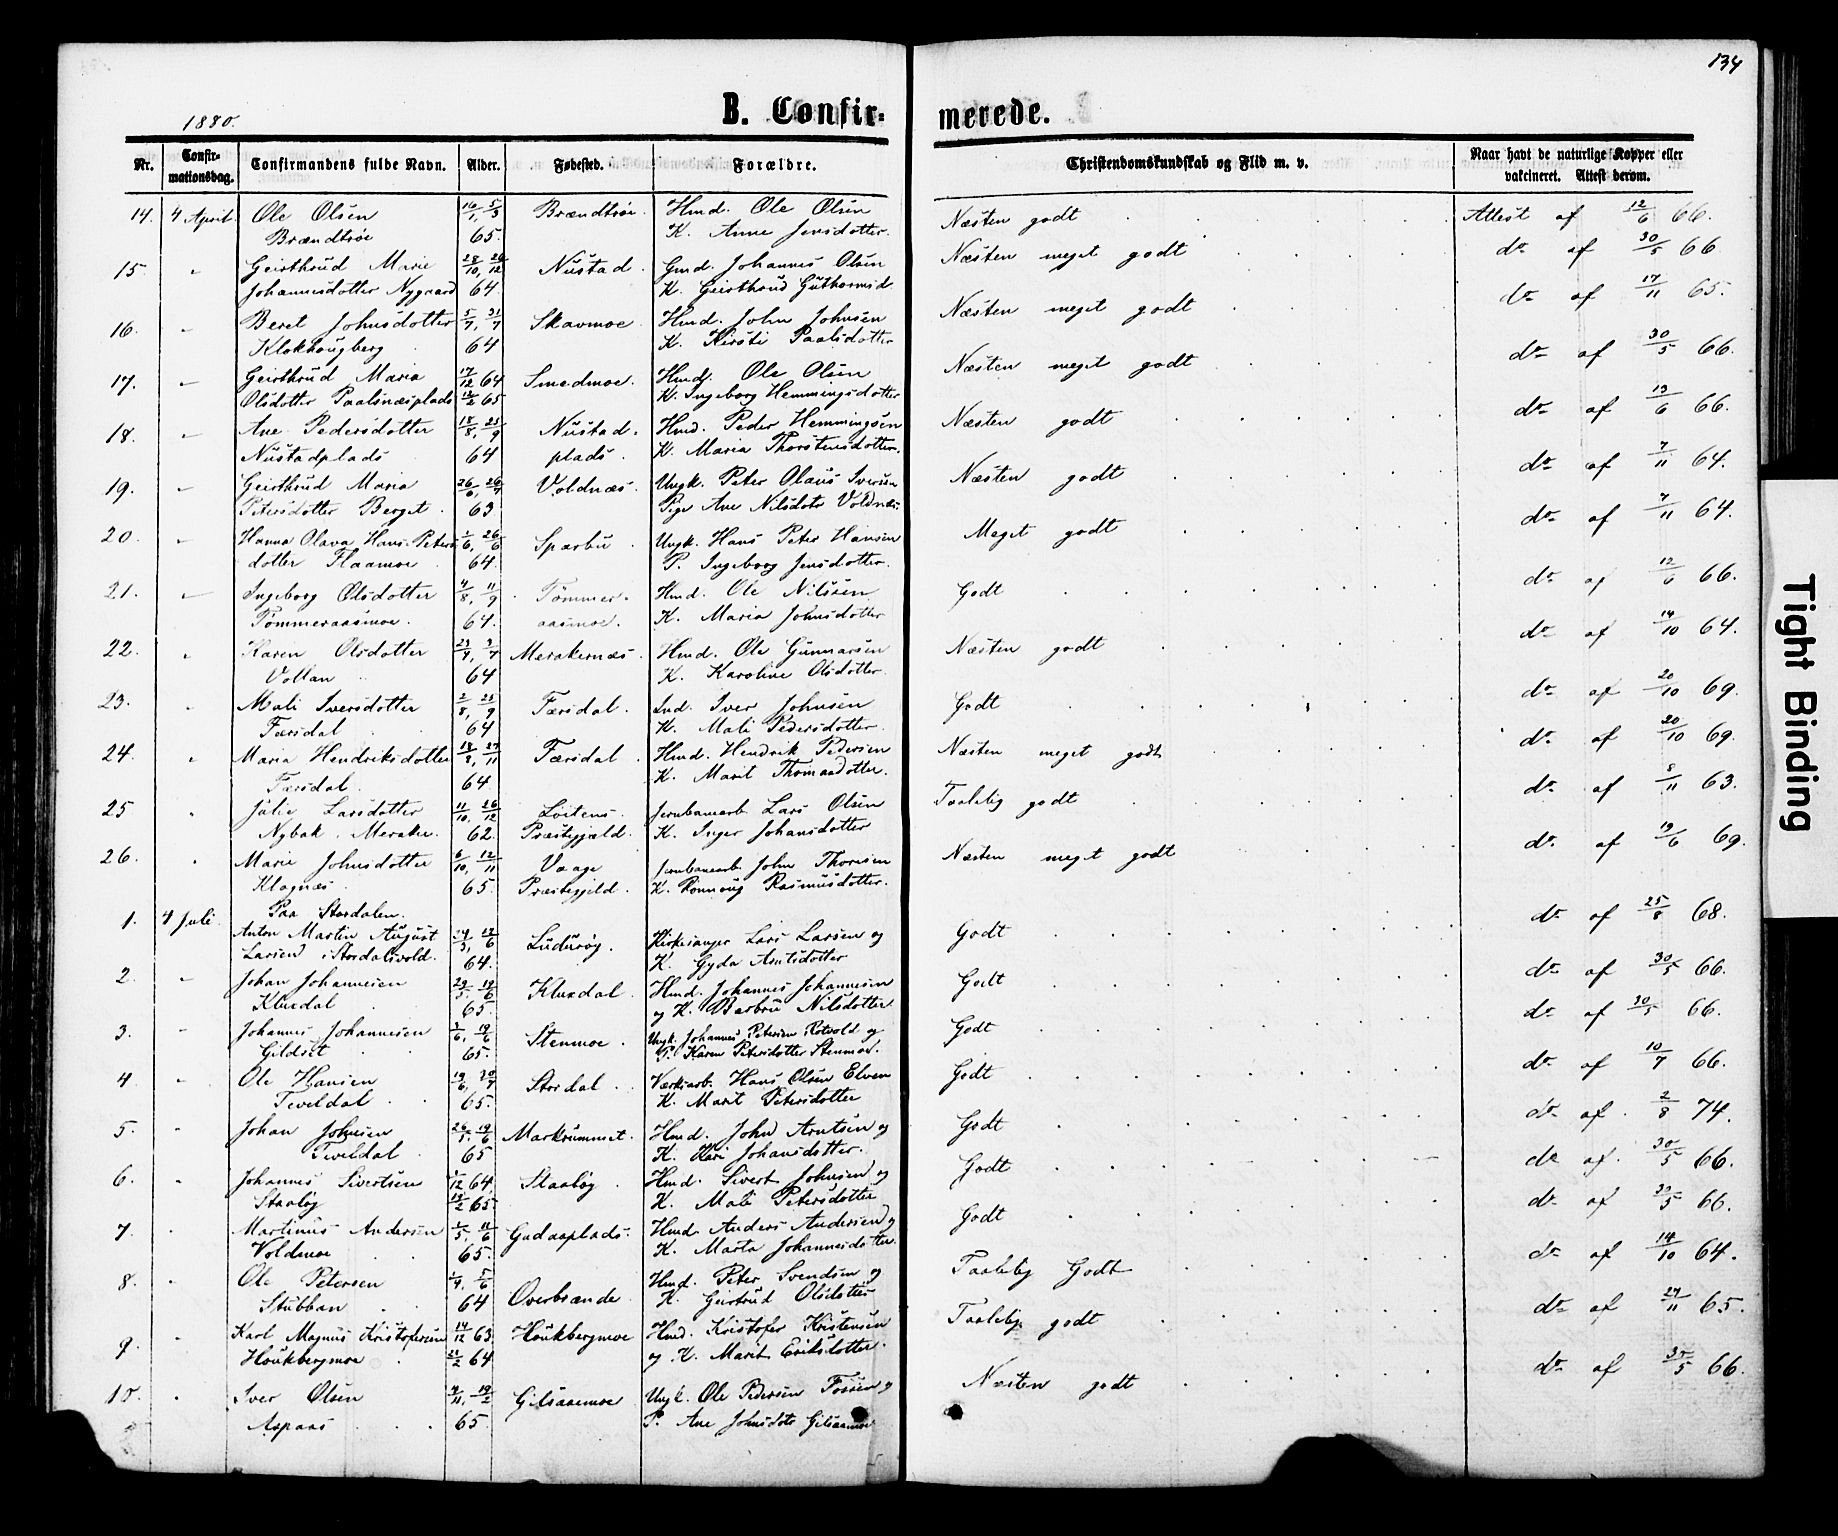 134
1880.
B. Confirmerede.
Nr. Confirmationsdag. Confirmandens fulde Navn. Alder. Fødested. Forældre. Christendomskundskab og Flid m. v. Naar havt de naturlige Kopper eller vakcineret. Attest derom.
14. 4 April. Ole Olsen 16/1, 5/3 Brændtrøe. Hmd. Ole Olsen Næsten godt Attest af 12/6 66.
Brændtrøe 65. K. Anne Jensdotter.
15. " Geirthrud Marie 28/10, 26/12 Nustad. Gmd. Johannes Olsen Næsten meget godt do af 30/5 66
Johannesdotter Nygaard 64. K. Geirthrud Guthormsd.
16. " Beret Johnsdotter 5/7, 31/7 Skavmoe. Hmd. John Johnsen Næsten meget godt do af 17/11 65.
Klokhougberg 64 K. Kirsti Paalsdotter
17. " Geirthrud Maria 17/12 64 Smedmoe. Hmd. Ole Olsen Næsten meget godt do af 30/5 66.
Olsdotter Paalsnæsplads 12/2 65 K. Ingeborg Hemmingsdotter
18. " Ane Pedersdotter 18/8, 25/9 Nustad- Hmd. Peder Hemmingsen Næsten godt do af 13/6 66.
Nustadplads 64 plads. K. Maria Thorstensdotter.
19. " Geirthrud Maria 26/6, 26/7 Voldnæs. Ungk. Peter Olaus Iversen Næsten godt do af 7/11 64.
Petersdotter Berget. 63 Pige Ane Nilsdotr Voldnæs.
20. " Hanna Olava Hans-Peters 1/6, 26/6 Sparbu. Ungk. Hans Peter Hansen Meget godt do af 7/11 64.
dotter Flaamoe 64. P. Ingeborg Jensdotter.
21. " Ingeborg Olsdotter 4/8, 11/9 Tømmer- Hmd. Ole Nilssen Godt do af 12/6 66.
Tømmeraasmoe. 64. aasmoe. K. Maria Johnsdotter
22. " Karen Olsdotter 23/4, 3/7 Merakernæs. Hmd. Ole Gunnarsen Næsten godt do af 14/10 64.
Vollan 64 K. Karoline Olsdotter.
23. " Mali Iversdotter 2/8, 25/9 Færsdal. Ind. Iver Johnsen Godt do af 20/10 69.
Færsdal 64 K. Mali Pedersdotter
24. " Maria Hendriksdotter 18/8, 27/11 Færsdal. Hmd. Hendrik Pedersen Næsten meget godt do af 20/10 69.
Færsdal. 64 K. Marit Thomasdotter.
25 " Julie Larsdotter 11/10, 26/12 Løitens Jernbanearb. Lars Olsen Taalelig godt do af 8/11 63.
Nybak. Meraker. 62. Præstegjæld. K. Inger Johansdotter
26. " Marie Johnsdotter 6/10, 12/11 Vaage Jernbanearb. John Thoresen Næsten meget godt do af 19/6 69.
Klognæs. 65. Præstegjeld. K. Ronnoug Rasmusdotter.
Paa Stordalen.
1. 4 Juli. Anton Martin August 24/3, 19/6 Kirkesanger Lars Larsen og Godt do af 25/8 68.
Larsen Stordalsvold. 64. K. Gyda Arntsdotter
2. " Johan Johannesen 29/3, 19/6 Kluxdal. Hmd. Johannes Johannesen Godt do af 30/5 66.
Kluxdal 65. og K. Barbru Nilsdotter
3. " Johannes Johannesen 3/6, 19/6 Stenmoe. Ungk. Johannes Petersen Rotvold og Godt do af 30/5 66.
Gildset 65. P. Karen Petersdotter Stenmoe.
4 " Ole Hansen 19/6, 30/7 Stordal. Værksarb. Hans Olsen Elven Godt do af 10/7 66.
Teveldal 65. K. Marit Petersdotter
5. " Johan Johnsen 26/5, 19/6 Markrummet. Hmd. John Arntsen og Godt do af. 2/8 74.
Teveldal. 65 K. Kari Johansdotter.
6. " Johannes Sivertsen 1/12 64 Staaløg. Hmd. Sivert Johnsen og Godt do af. 30/5 66.
Staaløg 12/2 65. K. Mali Petersdotter
7. " Martinus Andersen 1/5, 11/6 Gudaaplads. Hmd. Anders Andersen og Godt do af 30/5 66.
Voldmoe 65. K. Marta Johannesdotter.
8. " Ole Petersen 1/4, 5/6 Overbrænde Hmd. Peter Svendsen og Taalelig Godt do af 14/10 64.
Stubban 64 K. Geirtrud Olsdotter
9. " Karl Magnus Kristofersen 14/12 63 Houkbergmoe Hmd. Kristofer Kristensen Taalelig godt do af 27/11 65.
Houkbergmoe 21/2 64 og K. Marit Eriksdotter.
10. " Iver Olsen 4/11, 19/2 Gilsaamoe Ungk. Ole Pedersen Fossen og Næsten godt do af 30/5 66.
Aspaas 65. P. Ane Johnsdotr Gilsaamoe
Tight Binding